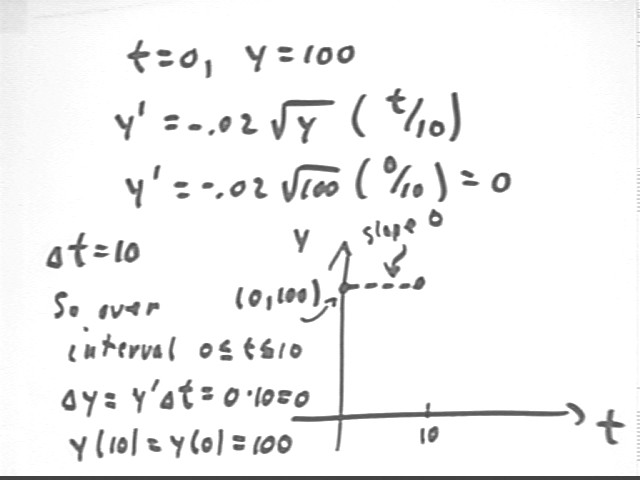 t=0, y=100
y' = -.02 √y (t/10)
y' = -.02 √100 (0/10) = 0
Δt=10
So over
interval 0≤t≤10
Δy = y'Δt = 0·10=0
y(10) = y(0) = 100
y
slope 0
(0,100)
10
t